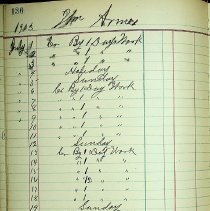 136
1903 Wm Armes
July 1 Cr By 1 Days Work
2 " 1 " "
3 " 1 " "
4 Holiday
5 Sunday
6 Cr By 1 Day Work
7 " 1 " "
8 " 1 " "
9 " 1 " "
10 " 1 " "
11 " 1 " "
12 Sunday
13 Cr By 1 Day Work
14 " 1 " "
15 " 1 " "
16 " "
17 " 1 " "
18 " 1 " "
19 Sunday